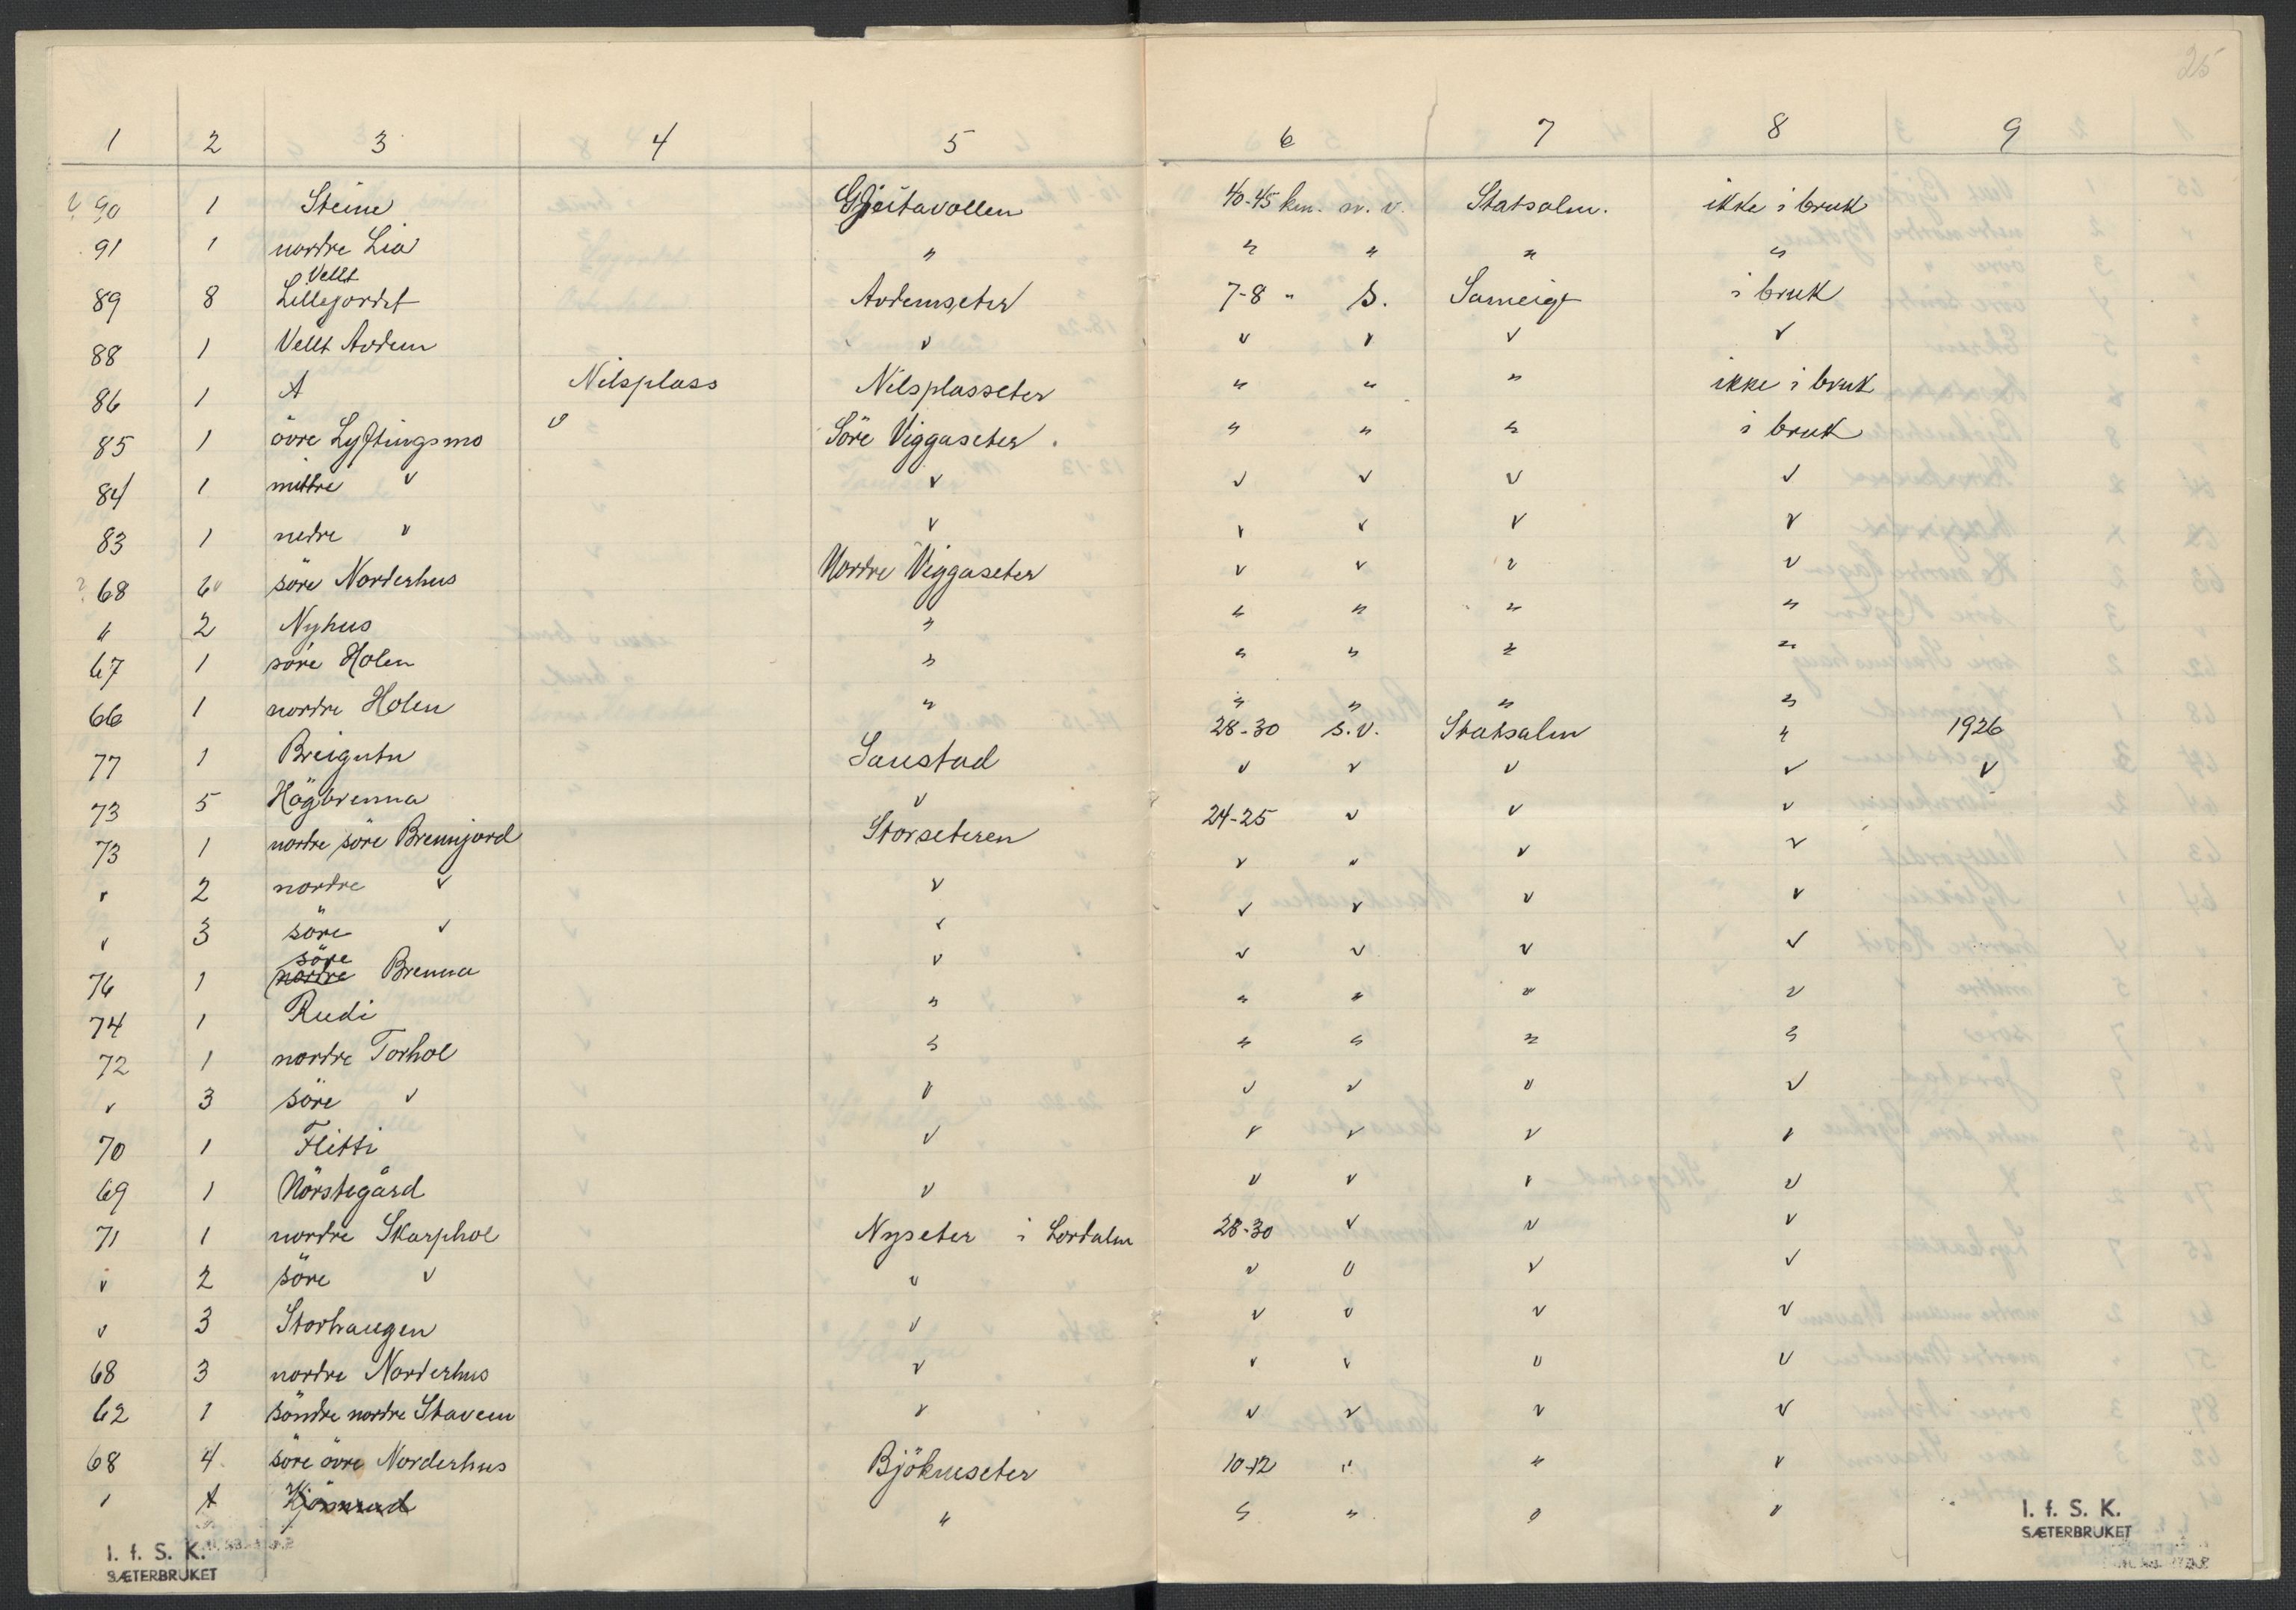 25
1 2 3 4 5 6 7 8 9
? 90 1 Steine Gjeitavollen 40-45 km. n. v. Statsalm. ikke i bruk
91 1 nordre Lia " " " " "
Vellt
89 8 Lillejordet Avdemseter 7-8 " S. Sameige i bruk
88 1 Vellt Avdem " " " " "
86 1 A Nilsplass Nilsplasseter " " " ikke i bruk
85 1 övre Lyftingsmo " Söre Viggaseter . " " " i bruk
84 1 mittre " " " " " "
83 1 nedre " " " " " "
? 68 6 söre Norderhus Nordre Viggaseter " " " "
" 2 Nyhus " " " " "
67 1 söre Holen " " " " "
66 1 nordre Holen " " " " "
77 1 Breigutu Saustad 28-30 s.v. Statsalm " 1926
73 5 Högbrenna " " " " " "
73 1 nordre söre Brennjord Storseteren 24-25 " " "
" 2 nordre " " " " " "
" 3 söre " " " " " "
söre
76 1 nordre Brenna " " " " "
74 1 Rudi " " " " "
72 1 nordre Torhol " " " " "
" 3 söre " " " " " "
70 1 Flitti " " " " "
69 1 Nörstegård " " " " "
71 1 nordre Skarphol Nyseter i Lordalen 28-30 " " "
" 2 söre " " " " " "
" 3 Storhaugen " " " " "
68 3 nordre Norderhus " " " " "
62 1 söndre nordre Stavem " " " " "
68 4 söre övre Norderhus Björkmseter 10-12 " " "
" " " " "
I. f. S. K.
SÆTERBRUKET
I. f. S. K.
SÆTERBRUKET